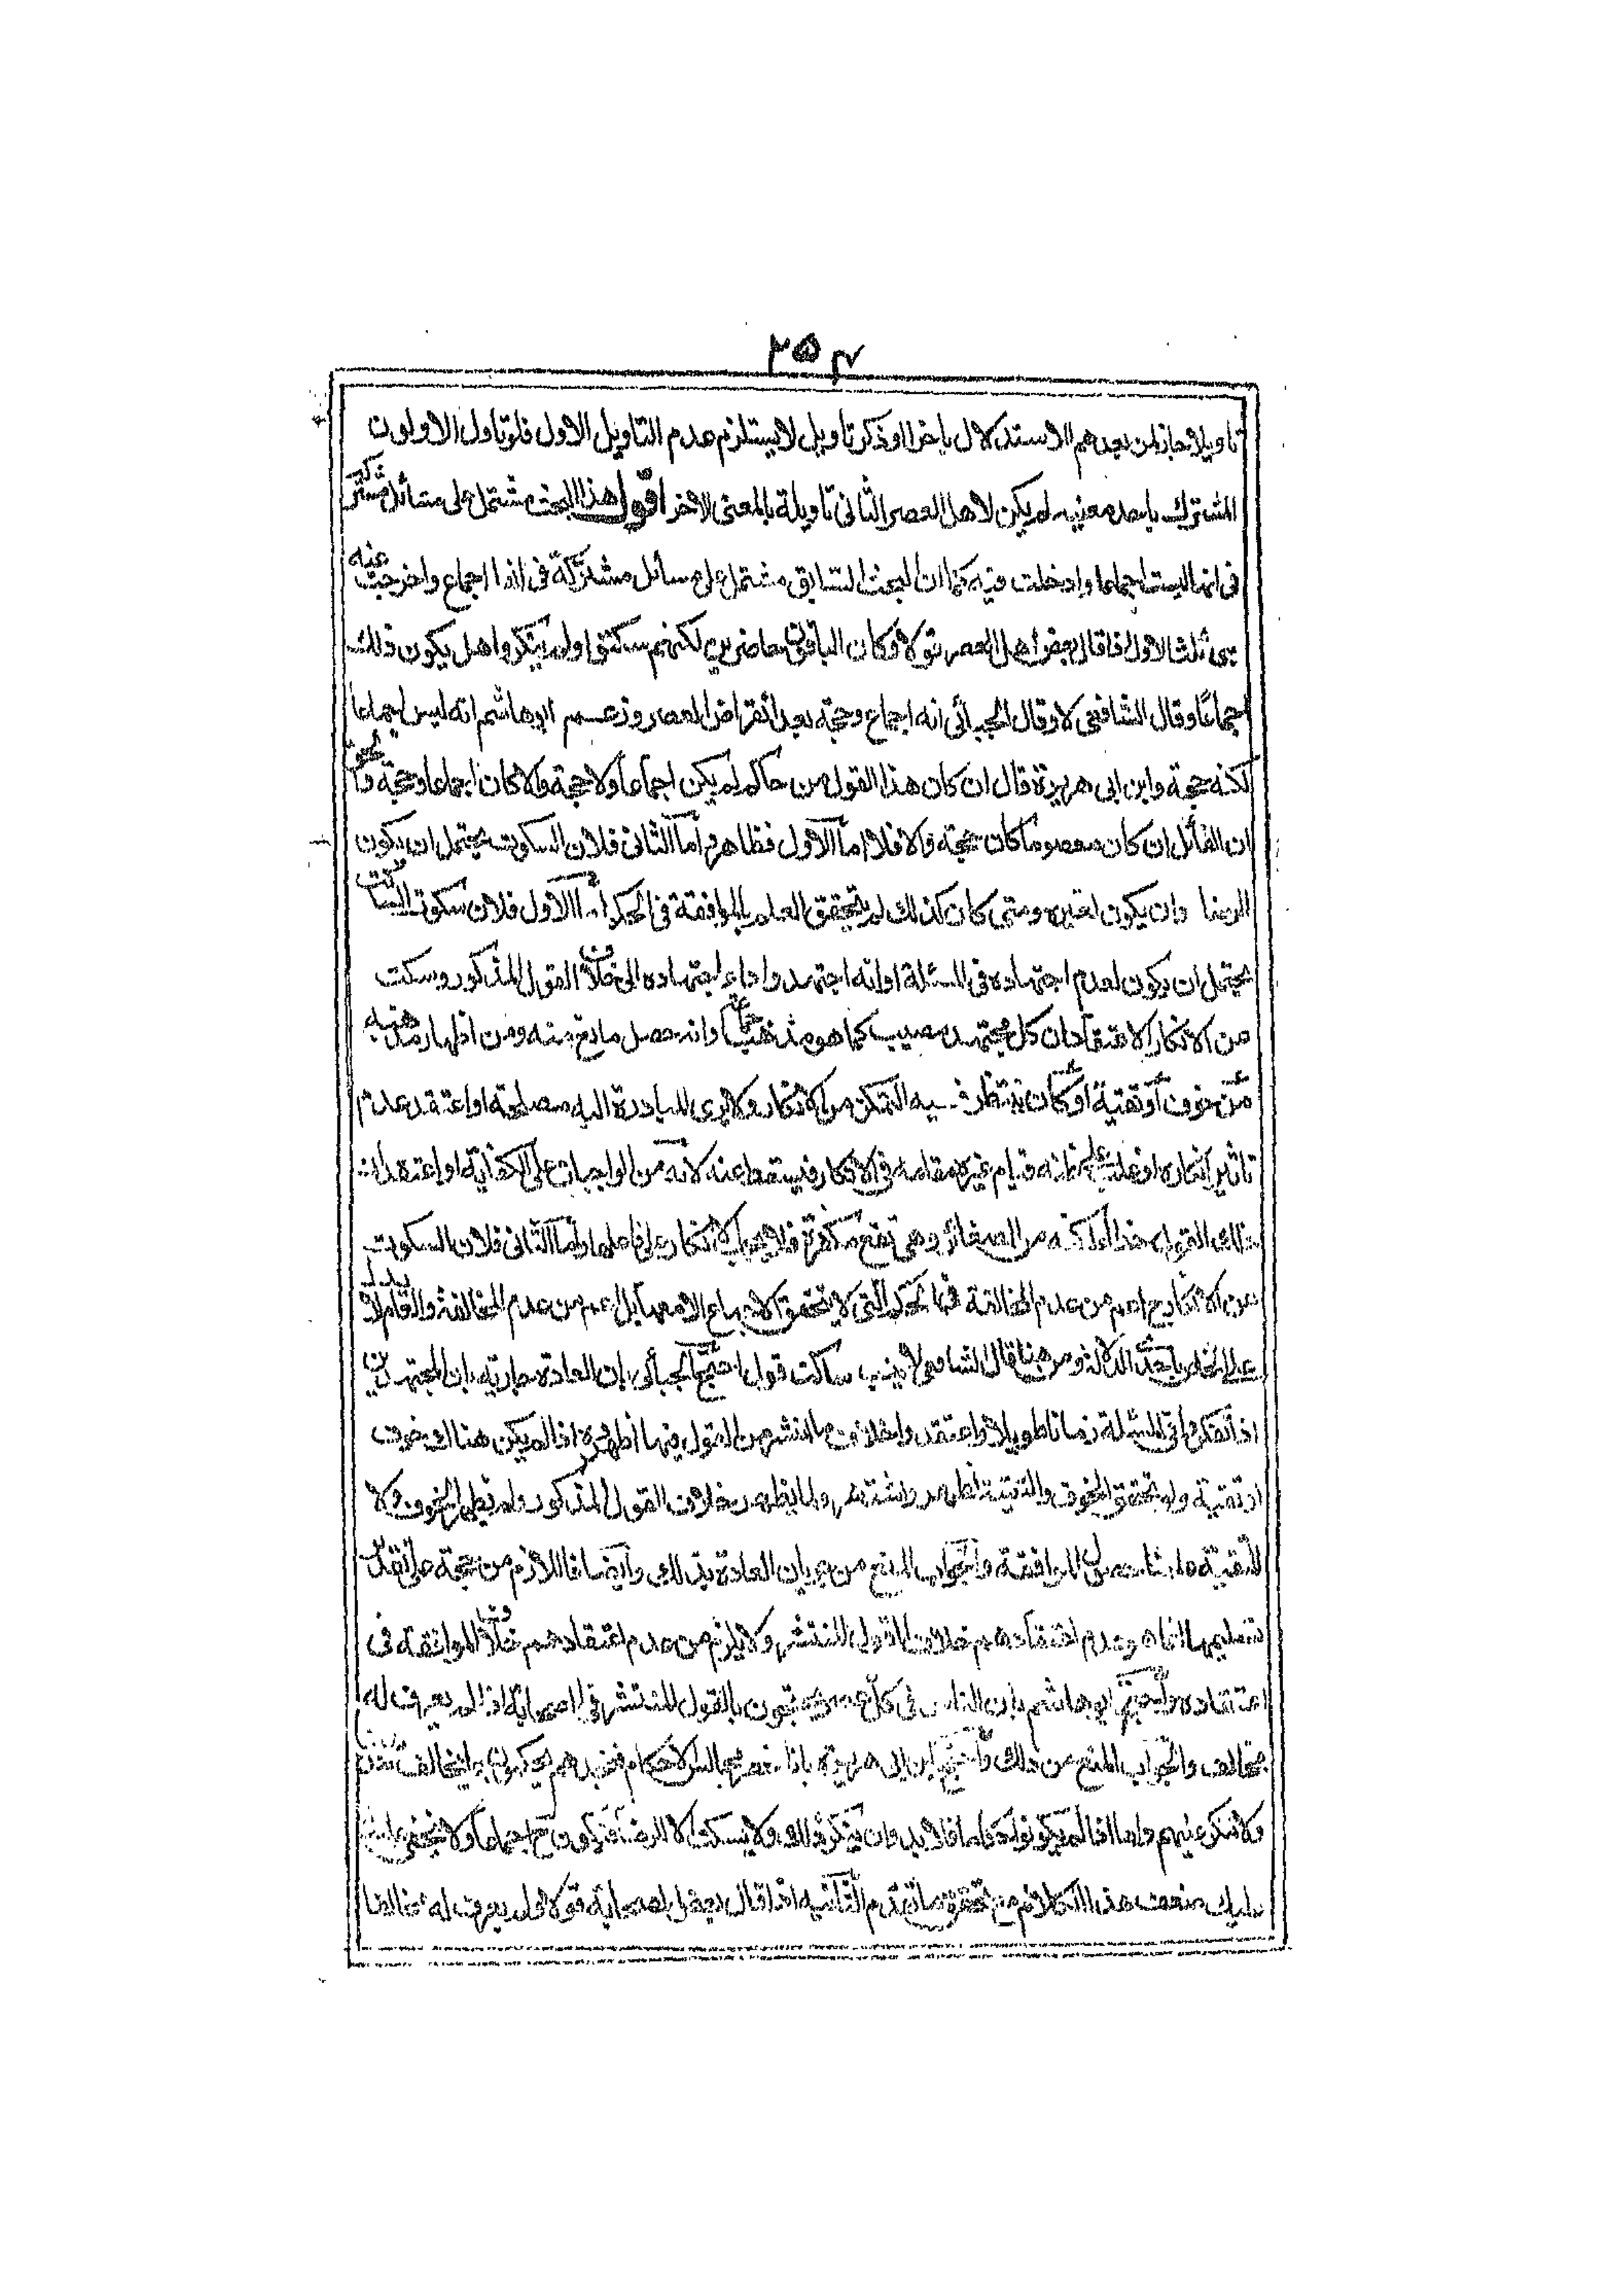 ٢٥٧
تاويلا جاز لمن بعدهم الاستدلال باخر او ذكر تاويل لا يستلزم هدم التاويل الاول فلو تاول الاولون
المشترك باحد معنييه لم يكن لاهل العصر الثانى تاويله بالمعنى الاخر اقول هذا البحث مشتمل على مسائل مشتركة
فى انها ليست اجماعا وادخلت فيه كما ان البحث السابق مشتمل على مسائل مشتركة فى انها اجماع واخرجت عنه
ثلث الاول اذا قال بعض اهل العصر قولا وكان الباقون حاضرين لكنهم سكتوا ولم ينكروا هل يكون ذلك
اجماعا وقال الشافعى لا وقال الجبائى انه اجماع وحجة بعد انقراض العصر وزعم ابو هاشم انه ليس اجماعا
لكنه حجة وابن ابى هريرة قال ان كان هذا القول من حاكم لم يكن اجماعا ولا حجة والا كان اجماعا وحجة والحق
ان القائل ان كان معصوما كان حجة والا فلا اما الاول فظاهر واما الثانى فلان السكوت يحتمل ان يكون
للرضا وان يكون لغيره ومتى كان كذلك لم يتحقق العلم بالموافقة فى الحكم اما الاول فلان سكوت الساكت
يحتمل ان يكون لعدم اجتهاده فى المسئلة او انه اجتهد واداه اجتهاده الى خلاف القول المذكور وسكت
من الانكار لاعتقاد ان كل مجتهد مصيب كما هو مذهب جماعة وانه حصل مانع منعه ومن اظهار مذهبه
من خوف او تقية او كان ينتظر فيه التمكن من الانكار ولا يرى المبادرة اليه مصلحة او اعتقد عدم
تاثير انكاره او غلب على ظنه قيام غيره مقامه فى الانكار فيسقط عنه لانه من الواجبات على الكفاية او اعتقد ان
ذلك القول خطأ لكنه من الصغائر وهى تقع مكفرة فلا يجب الانكار على فاعلها واما الثانى فلان السكوت
عن الانكار ح اعم من عدم المخالفة فى الحكم التى لا يتحقق الاجماع الا معها بل اعم من عدم المخالفة والعام لا يدل
على الخاص باحدى الدلالة ومن هنا قال الشافعى لا ينسب الى ساكت قول احتج الجبائى بان العادة جارية بان المجتهدين
اذا تفكروا فى المسئلة زمانا طويلا واعتقدوا خلاف ما انتشر من القول فيها اظهروه اذا لم يكن هناك خوف
او تقية ولو تحقق الخوف والتقية لظهر واشتهر ولما يظهر خلاف القول المذكور ولم يظهر الخوف ولا
التقية علمنا حصول الموافقة والجواب المنع من جريان العادة بذلك وايضا فاللازم من حجته على تقدير
تسليمها انما هو عدم اعتقادهم خلاف القول المنتشر ولا يلزم من عدم اعتقادهم خلافه الموافقة فى
اعتقاده واحتج ابو هاشم بان الناس فى كل عصر يحتجون بالقول المنتشر فى الصحابة اذا لم يعرف له
مخالف والجواب المنع من ذلك واحتج ابن ابى هريرة بانا نحضر مجالس الاحكام فنجدهم يحكمون بما يخالف
ولا ننكر عليهم واما اذا لم يكونوا حكاما فلا بد وان ينكر ذلك ولا يسكت الا للرضا فيكون ح اجماعا ولا يخفى
عليك ضعف هذا الكلام مع تحقق ما تقدم الثانية اذا قال بعض الصحابة قولا ولم يعرف له مخالفا